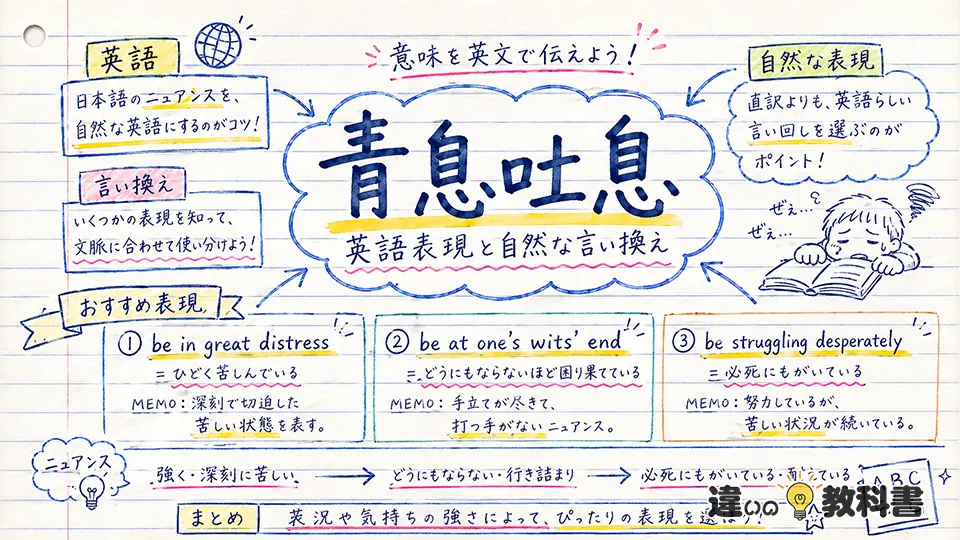 意味を英文で伝えよう！
英語
日本語のニュアンスを、
自然な英語にするのがコツ！
言い換え
いくつかの表現を知って、
文脈に合わせて使い分けよう！
青息吐息
英語表現と自然な言い換え
自然な表現
直訳よりも、英語らしい
言い回しを選ぶのが
ポイント！
ぜぇ…
ぜぇ…
おすすめ表現
① be in great distress
＝ひどく苦しんでいる
MEMO：深刻で切迫した
苦しい状態を表す。
② be at one's wits' end
＝どうにもならないほど困り果てている
MEMO：手立てが尽きて、
打つ手がないニュアンス。
③ be struggling desperately
＝必死にもがいている
MEMO：努力しているが、
苦しい状況が続いている。
ニュアンス
強く・深刻に苦しい → どうにもならない・行き詰まり → 必死にもがいている・
ABC
まとめ
況や気持ちの強さによって、ぴったりの表現を選ぼう！
違いの教科書